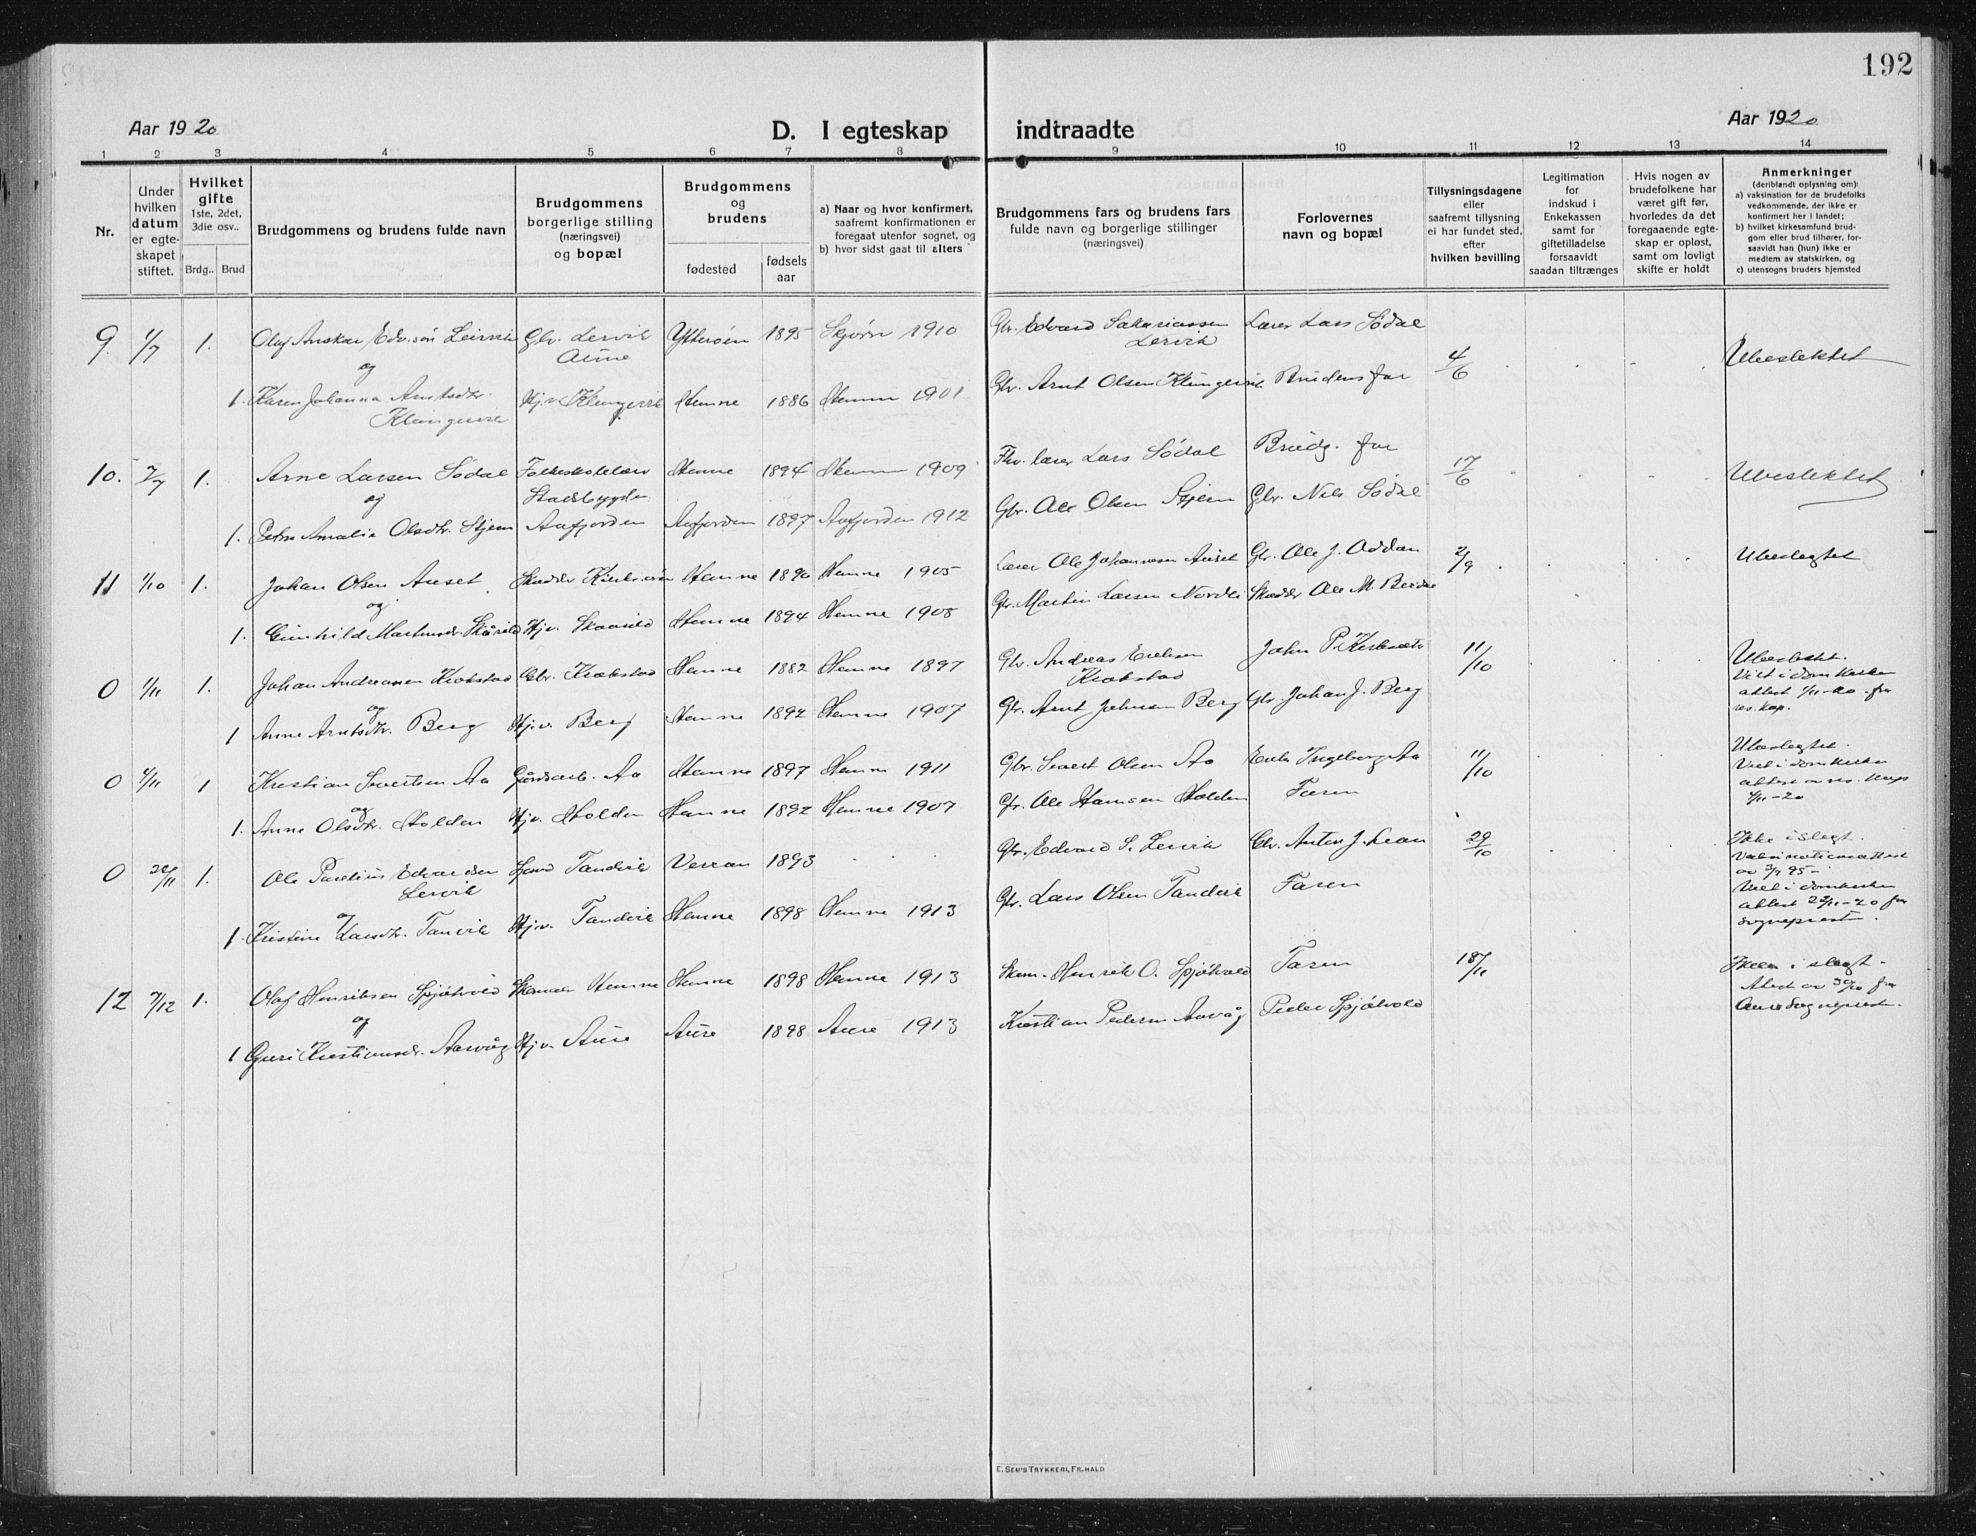 192
Aar 1920
D. I egteskap indtraadte
Aar 1920
1 2 3 4 5 6 7 8 9 10 11 12 13 14
Nr.
Under hvilken datum er egte-skapet stiftet.
Hvilket gifte
1ste, 2det, 3die osv..
Brdg.. Brud
Brudgommens og brudens fulde navn
Brudgommens borgerlige stilling (næringsvei) og bopæl
Brudgommens og brudens
fødested
fødsels aar
a) Naar og hvor konfirmert, saafremt konfirmationen er foregaat utenfor sognet, og
b) hvor sidst gaat til alters
Brudgommens fars og brudens fars fulde navn og borgerlige stillinger (næringsvei)
Forlovernes navn og bopæl
Tillysningsdagene eller saafremt tillysning ei har fundet sted, efter hvilken bevilling
Legitimation for indskud i Enkekassen samt for giftetilladelse forsaavidt saadan tiltrænges
Hvis nogen av brudefolkene har været gift før, hvorledes da det foregaaende egte-skap er opløst, samt om lovligt skifte er holdt
Anmerkninger
(deriblandt oplysning om):
a) vaksination for de brudefolks vedkommende, der ikke er konfirmert her i landet;
b) hvilket kirkesamfund brud-gom eller brud tilhører, for-saavidt han (hun) ikke er medlem av statskirken, og
c) utensogns bruders hjemsted
9. 1/7 1. Olaf Anskar Edv.søn Leirvik Gbr. Lervik Ytterøen 1895 Skjørn 1910 Gbr. Edvard Sakariassen Lærer Lars Södal
Aune Lervik 4/6 Ubeslektet
og
1. Karen Johanna Arntsdtr. Hjv. Klungervik Hemne 1886 Hemne 1901 Gbr. Arnt Olsen Klungervik Brudens far
Klungervik
10. 2/7 1. Arne Larsen Södal Folkeskolelærer Hemne 1894 Hemne 1909 Fhv. lærer Lars Södal Brudg. far 17/6 Ubeslektet
og Stadsbygden
1. Petra Amalie Olsdtr. Stjern Aafjorden Aafjorden 1897 Aafjorden 1912 Gbr. Ole Olsen Stjern Gbr. Nils Södal
11 1/10 1. Johan Olsen Auset Hemne 1890 Hemne 1905 Lærer Ole Johannesen Auset Gbr. Ole J. Oddan 2/9 Ubeslegtet
og
1. Gunhild Martinsdr. Hjv. Hemne 1894 Hemne 1908 Gbr. Martin Larsen Nordli Ole M.
0 1/11 1. Johan Andreassen Krokstad Gbr. Krokstad Hemne 1882 Hemne 1897 Gbr. Andreas Eriksen John P. 11/10 Ubeslektet.
og Krokstad Viet i domkirken
attest 1/11-20 fra
res. kap.
1 Anne Arntsdtr. Berg Hjv. Berg Hemne 1892 Hemne 1907 Gbr. Arnt Johnsen Berg Gbr. Johan J. Berg
0 1/11 1 Kristian Sivertsen Aa Gårdarb. Aa Hemne 1897 Hemne 1911 Gbr. Sivert Olsen Aa Enke Ingeborg Aa 11/10 Ubeslegtet.
og Viet i domkirken
attest av res. kap.
1/11-20
1. Anne Olsdtr. Holden Hjv. Holden Hemne 1892 Hemne 1907 Gbr. Ole Hansen Holden Faren
0 22/11 1. Ole Paulius Edvardsen Tandvik Verran 1893 Gbr. Edvard S. Lervik Gbr. Anton J. Lian 29/10 Ikke i slegt.
Lervik Vaksinationsattest
av 3/7 95
og Viet i domkirken
attest 22/11-20 fra
sognepresten.
1. Kristine Larsdtr. Tanvik Hjv. Tandvik Hemne 1898 Hemne 1913 Gbr. Lars Olsen Tandvik Faren
12 7/12 1. Olaf Henriksen Spjötvold Hemne Hemne 1898 Hemne 1913 Henrik O. Spjötvold Faren 18/11 Ikke i slegt.
og Attest av 30/10 fra
Aure sogneprest.
1 Guri Kristiansdr. Aarvåg Hjv. Aure Aure 1898 Aure 1913 Kristian Pedersen Aarvåg Peder Spjötvold
E. SEM'S TRYKKERI, FR.HALD